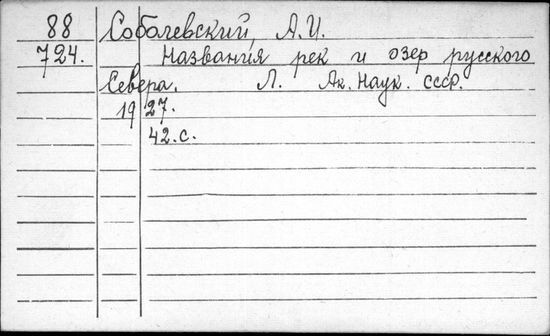 88 Соболевский, А.И.
724. Названия рек и озер русского
Севера. Л. Ак. Наук. СССР.
1927.
42.с.